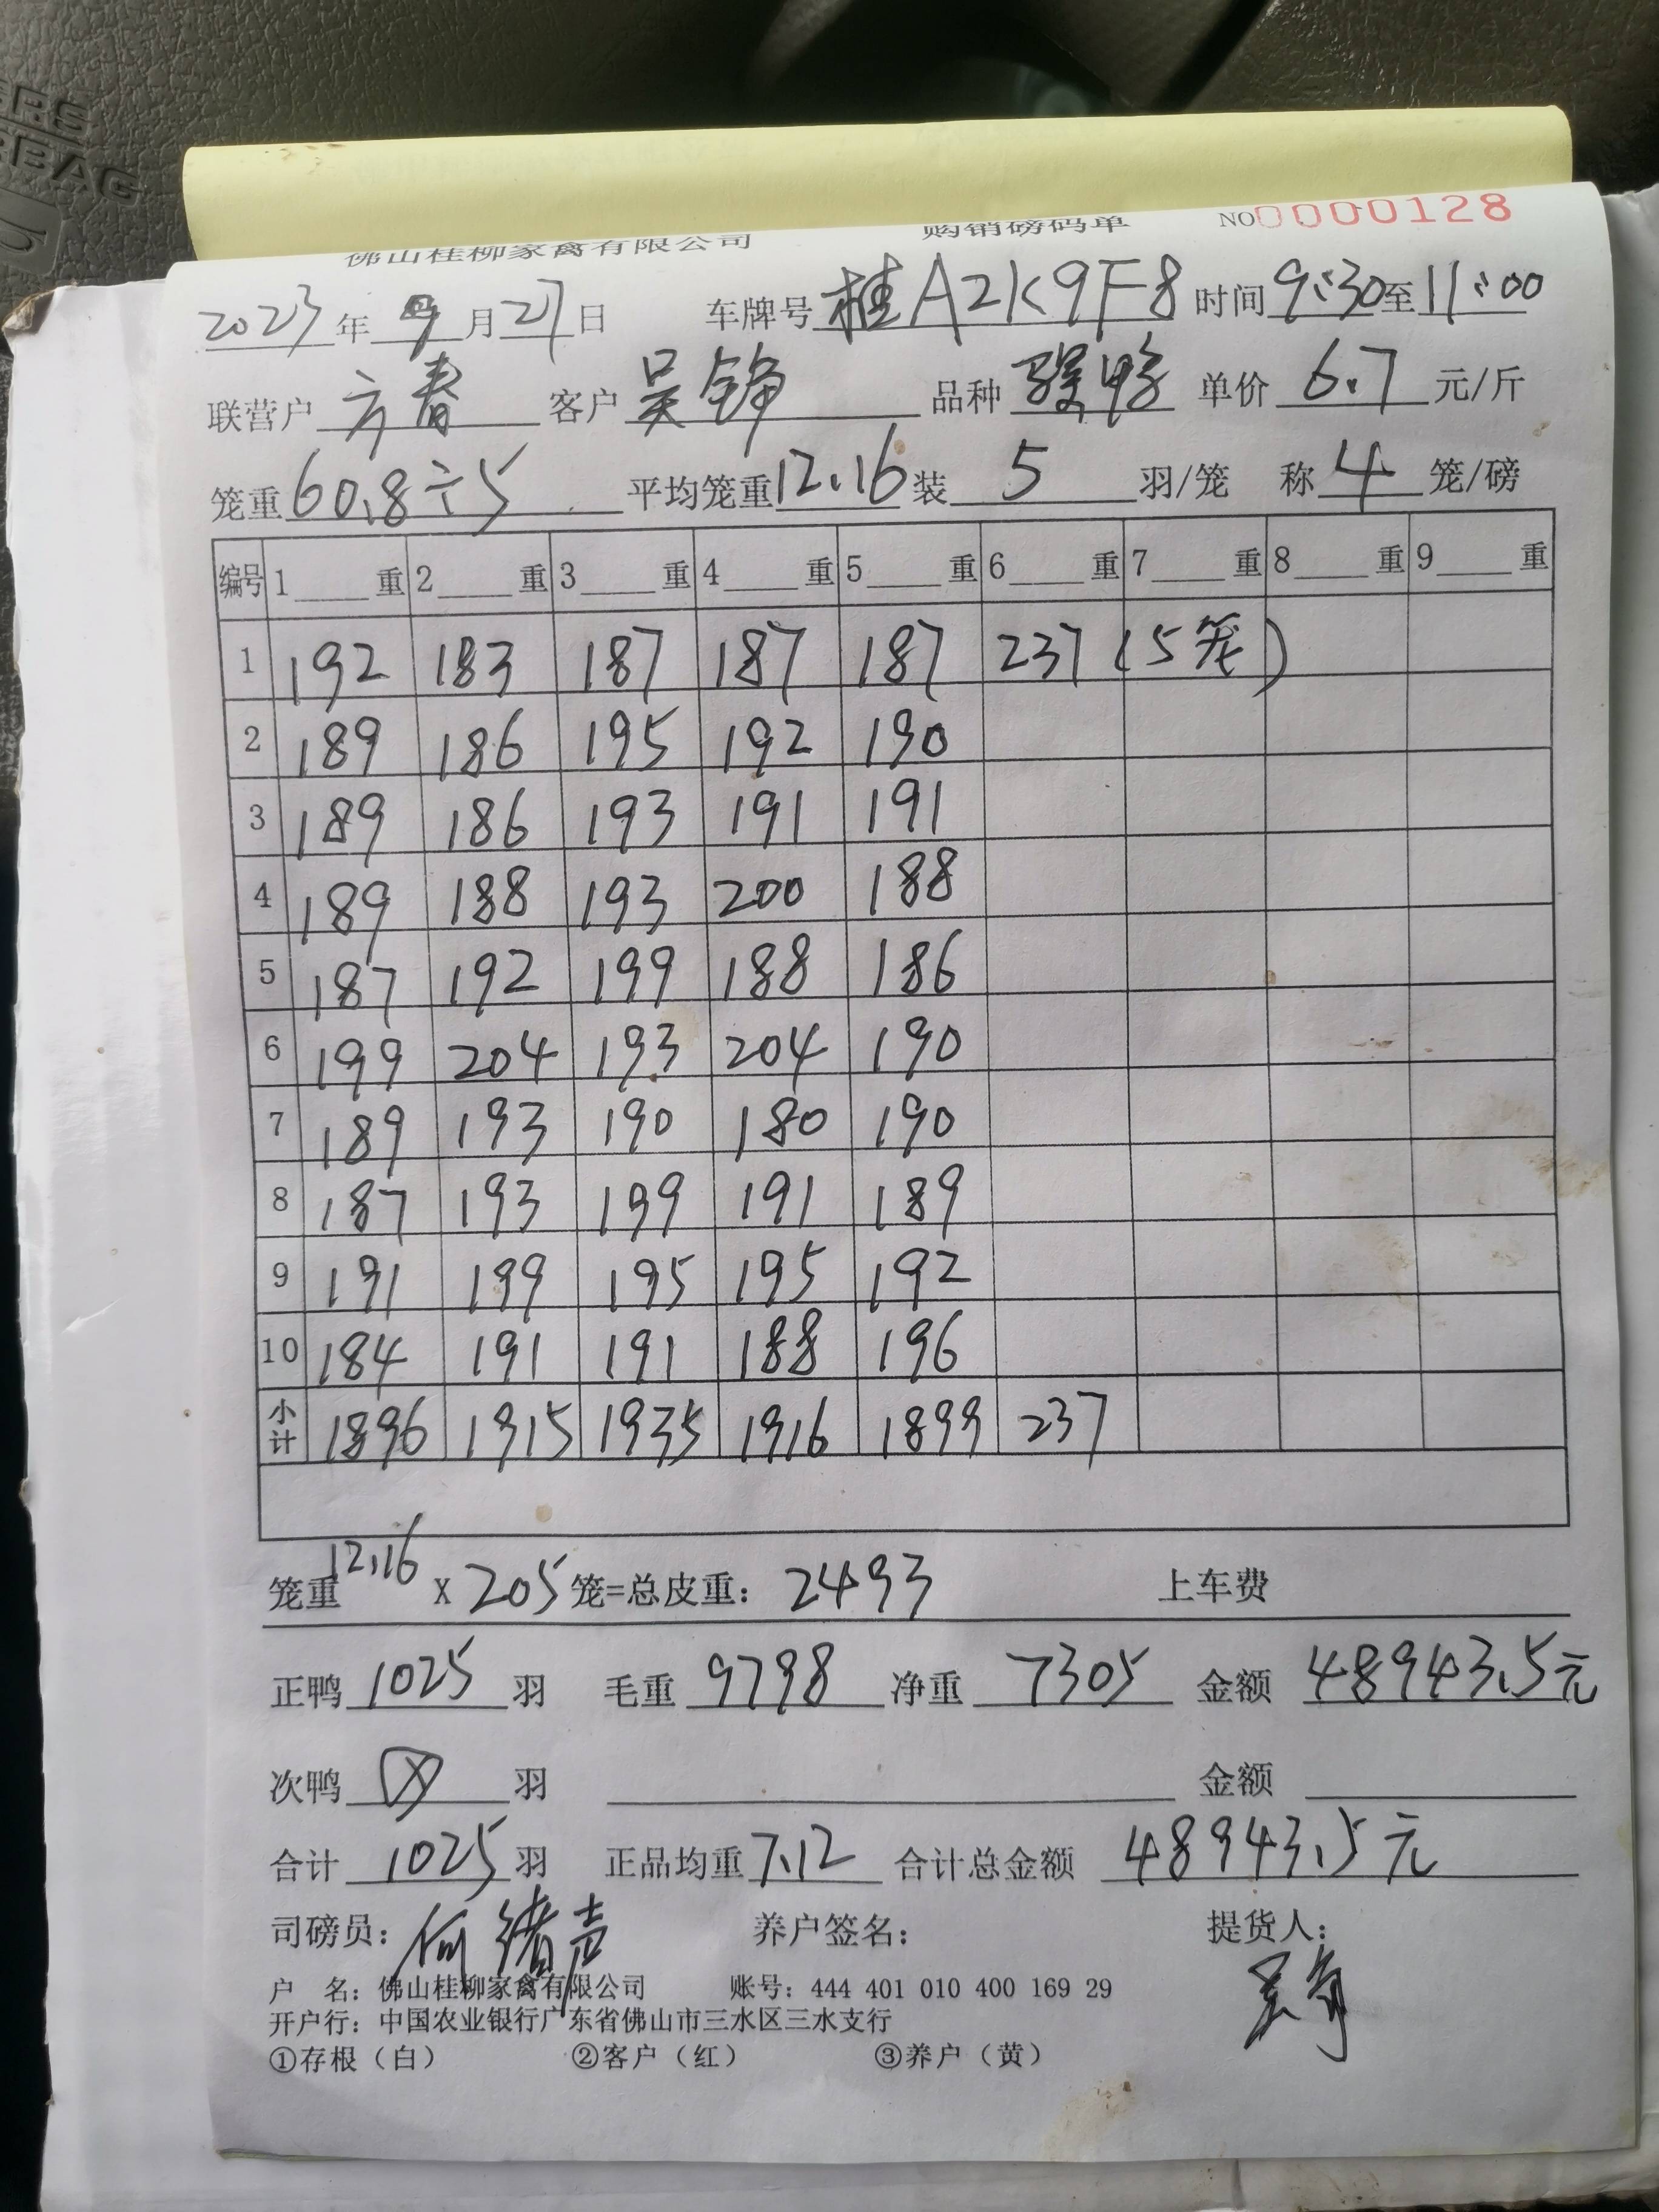 佛山桂柳家禽有限公司 购销磅码单 NO0000128
2023年9月27日 车牌号桂A2K9F8时间9:30至11:00
联营户 方春 客户吴铮 品种 骡鸭 单价 6.7 元/斤
笼重60.8÷5 平均笼重12.16装 5 羽/笼 称 4 笼/磅
编号 1____重 2____重 3____重 4____重 5____重 6____重 7____重 8____重 9____重
1 192 183 187 187 187 237 (5笼)
2 189 186 195 192 190
3 189 186 193 191 191
4 189 188 193 200 188
5 187 192 199 188 186
6 199 204 193 204 190
7 189 193 190 180 190
8 187 193 199 191 189
9 191 199 195 195 192
10 184 191 191 188 196
小计 1896 1915 1935 1916 1899 237
笼重12.16 X 205笼=总皮重: 2493 上车费
正鸭 1025 羽 毛重 9798 净重 7305 金额 48943.5元
次鸭 羽 金额
合计 1025 羽 正品均重7.12 合计总金额 48943.5元
司磅员: 何绪声 养户签名: 提货人:
户 名: 佛山桂柳家禽有限公司 账号: 444 401 010 400 169 29
开户行: 中国农业银行广东省佛山市三水区三水支行
①存根（白） ②客户（红） ③养户（黄）